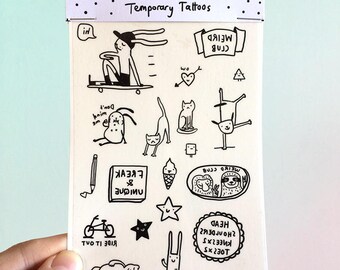 Temporary Tattoos
hi
WEIRD
CLUB
Don't
mind
me
FREAK
&
UNIQUE
WEIRD CLUB
RIDE IT OUT
HEAD
SHOULDERS
KNEESX2
TOESX2